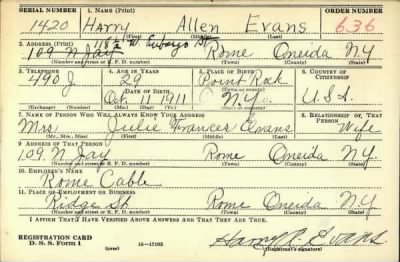 SERIAL NUMBER 1. NAME (Print) ORDER NUMBER
1420 Harry Allen Evans 636
(First) (Middle) (Last)
2. ADDRESS (Print)
118½ W. St
109 N Jay Rome Oneida N.Y
(Number and street or R. F. D. number) (Town) (County) (State)
3. TELEPHONE 4. AGE IN YEARS 5. PLACE OF BIRTH 6. COUNTRY OF CITIZENSHIP
490 J 29 Point Rock
DATE OF BIRTH (Town or county)
Oct 11 1911 N.Y. U.S.A.
(Exchange) (Number) (Mo.) (Day) (Yr.) (State or country)
7. NAME OF PERSON WHO WILL ALWAYS KNOW YOUR ADDRESS 8. RELATIONSHIP OF THAT PERSON
Mrs. Julie Frances Evans Wife
(Mr., Mrs., Miss) (First) (Middle) (Last)
9. ADDRESS OF THAT PERSON
109 N Jay Rome Oneida N.Y.
(Number and street or R. F. D. number) (Town) (County) (State)
10. EMPLOYER'S NAME
Rome Cable
11. PLACE OF EMPLOYMENT OR BUSINESS
Ridge St Rome Oneida N.Y
(Number and street or R. F. D. number) (Town) (County) (State)
I AFFIRM THAT I HAVE VERIFIED ABOVE ANSWERS AND THAT THEY ARE TRUE.
REGISTRATION CARD
D. S. S. Form 1 (over) 16—17105 Harry A Evans
(Registrant's signature)